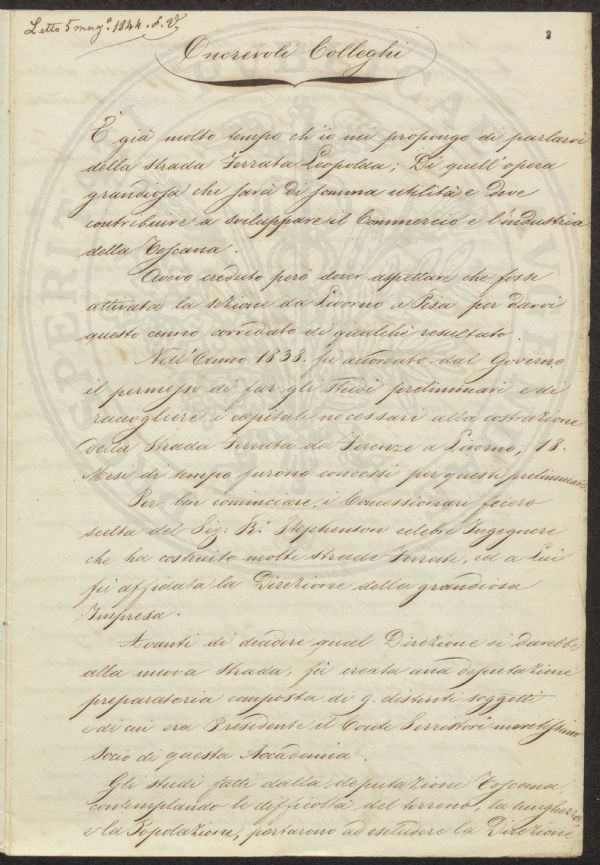 Letto 5 magº. 1844. S. Vº.
2
Onorevoli Colleghi
È già molto tempo ch'io mi propongo di parlarvi
della strada Ferrata Leopolda; Di quell'opera
grandiosa che sarà di somma utilità e deve
contribuire a sviluppare il Commercio e l'industria
della Toscana.
Avevo creduto però dover aspettare che fosse
attivata la sezione da Livorno a Pisa per darvi
questo cenno corredato di qualche resultato.
Nell'Anno 1838. fù accordato dal Governo
il permesso di far gli studi preliminari e di
raccogliere i capitali necessari alla costruzione
della Strada Ferrata da Firenze a Livorno; 18.
Mesi di tempo furono concessi per questi preliminari.
Per ben cominciare, i Concessionari fecero
scelta del Sig: R. Stephenson celebre Ingegnere
che ha costruito molte strade Ferrate, ed a Lui
fù affidata la Direzione della grandiosa
Impresa.
Avanti di decidere qual Direzione si darebbe
alla nuova Strada, fù creata una deputazione
preparatoria composta di 9. distinti soggetti
e di cui era Presidente il Conte Serristori meritissimo
socio di questa Accademia.
Gli studi fatti dalla deputazione Toscana,
contemplando le difficoltà del terreno, la lunghezza,
e la Popolazione, portarono ad escludere la Direzione